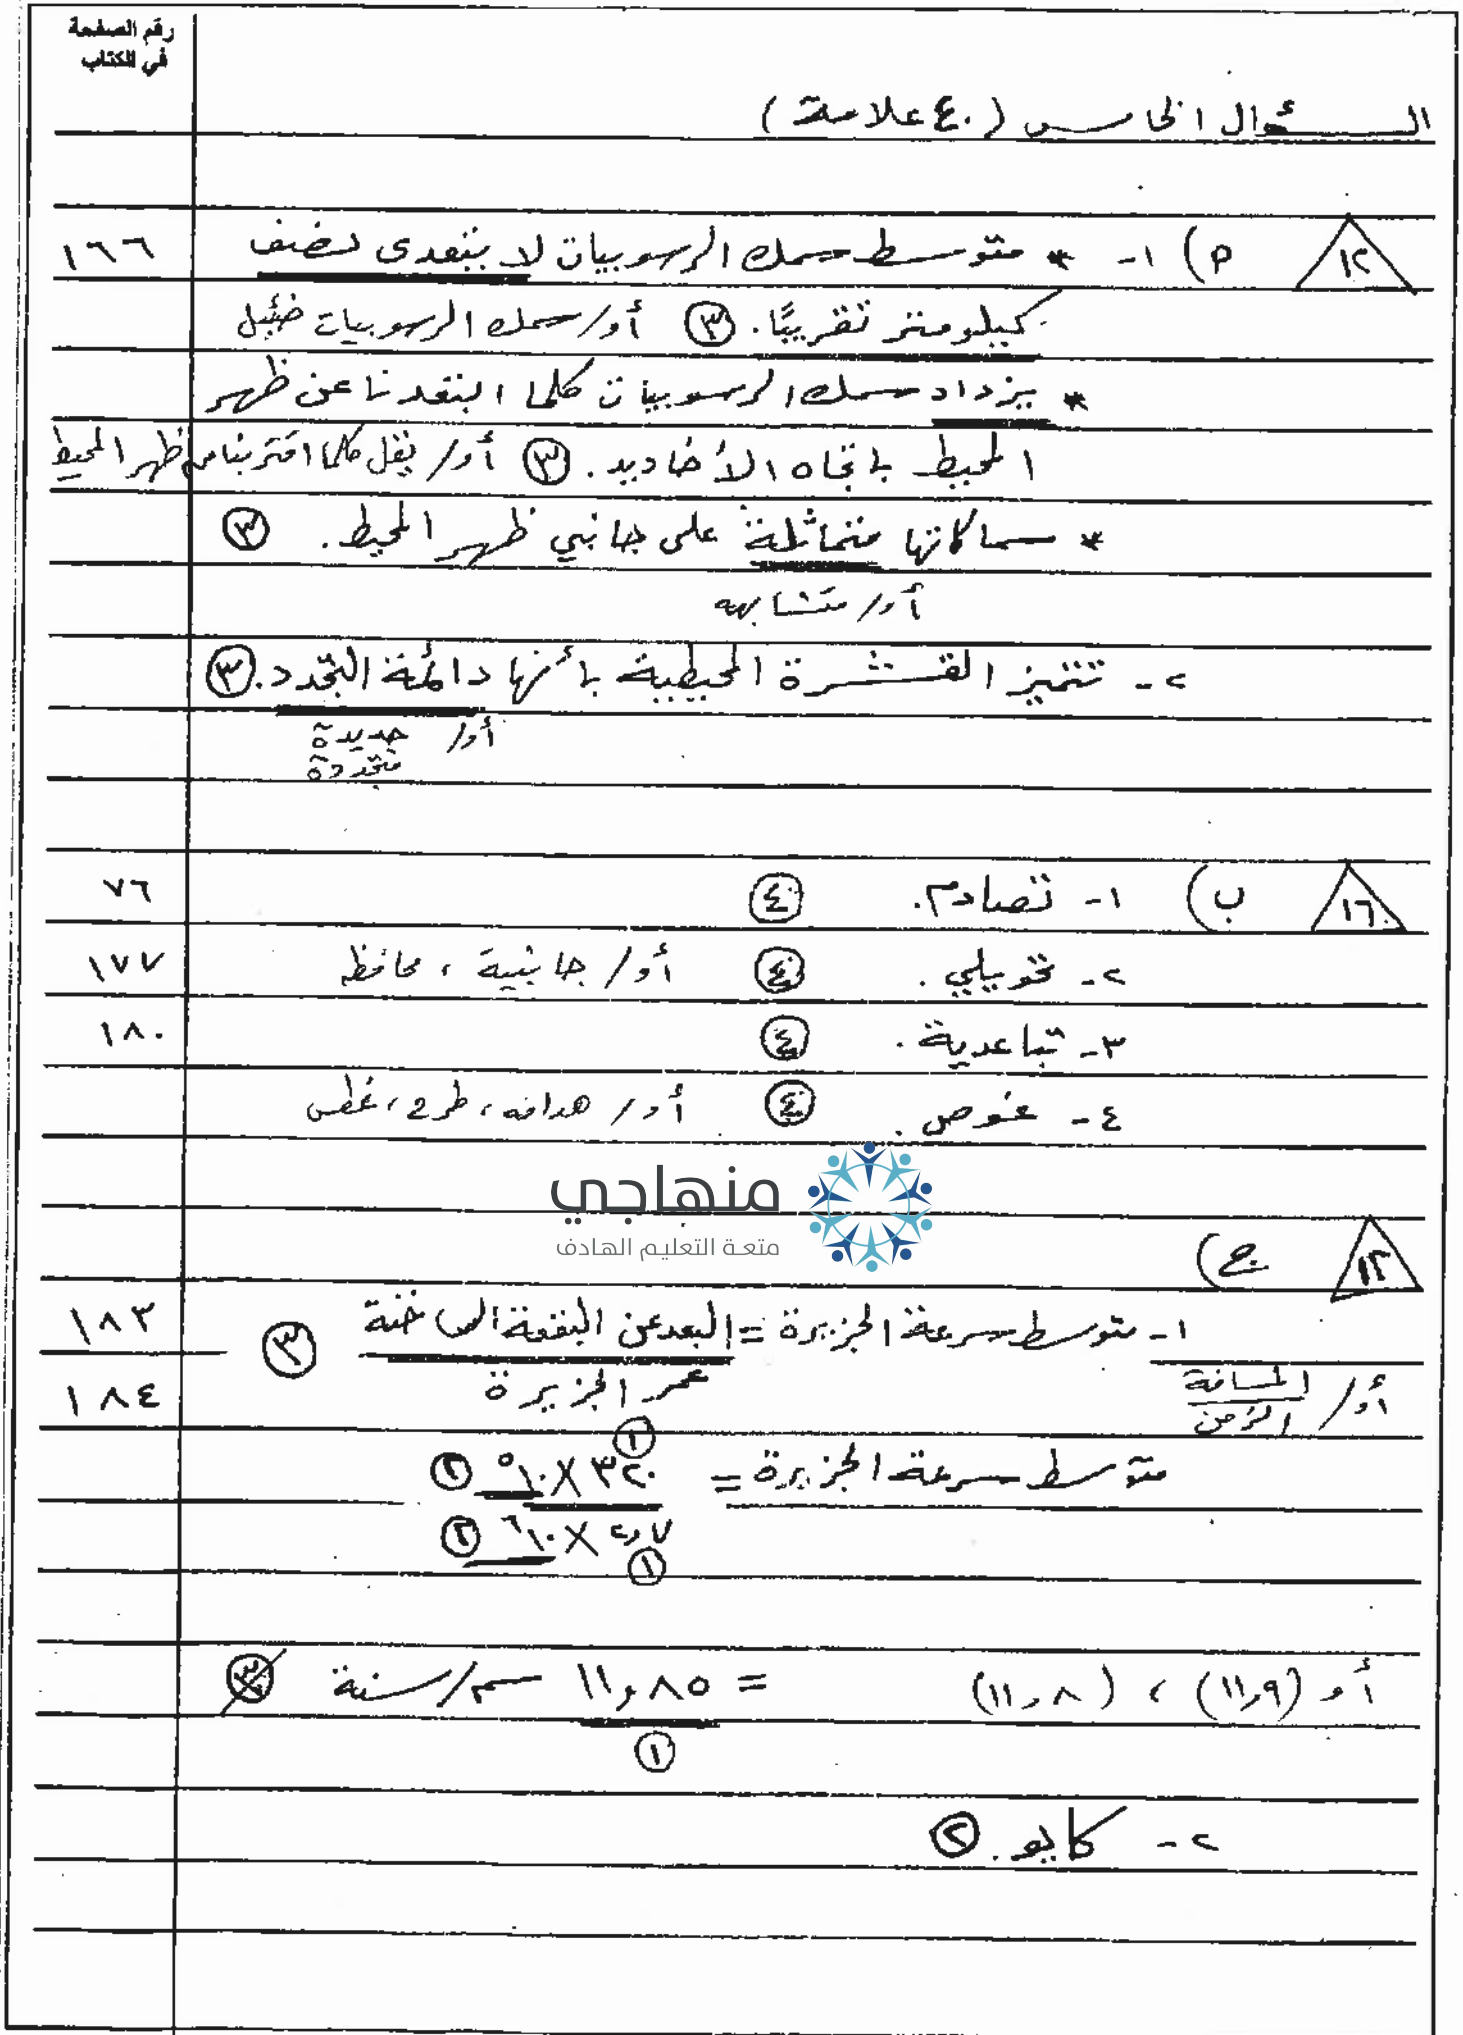 رقم الصفحة
في الكتاب
السؤال الخامس (٤٠ علامة)
١٢ م) ١- * متوسط سمك الرسوبيات لا يتعدى نصف ١٦٦
كيلومتر تقريبًا. ٣ أو/ سمك الرسوبيات ضئيل
* يزداد سمك الرسوبيات كلما ابتعدنا عن ظهر
المحيط باتجاه الأخاديد. ٣ أو/ يقل كلما اقتربنا من ظهر المحيط
* سماكاتها متماثلة على جانبي ظهر المحيط. ٣
أو/ متشابهه
٢- تتميز القشرة المحيطية بأنها دائمة التجدد. ٣
أو/ جديدة
متجددة
١٦ ب) ١- تصادم. ٤ ٧٦
٢- تحويلي. ٤ أو/ جانبية ، محافظ ١٧٧
٣- تباعدية. ٤ ١٨٠
٤- غوص. ٤ أو/ هدامه ، طرح ، غطس
منهاجي
متعة التعليم الهادف
١٢ ج)
١- متوسط سرعة الجزيرة = البعد عن البقعة الساخنة ٣ ١٨٣
أو/ المسافة عمر الجزيرة ١٨٤
الزمن
١
متوسط سرعة الجزيرة = ٣٢٠ × ١٠^٥ ٢
٢,٧ × ١٠^٦ ٢
١
أو (١١,٩) ، (١١,٨) = ١١,٨٥ سم/سنة ٣
١
٢- كايو. ٢